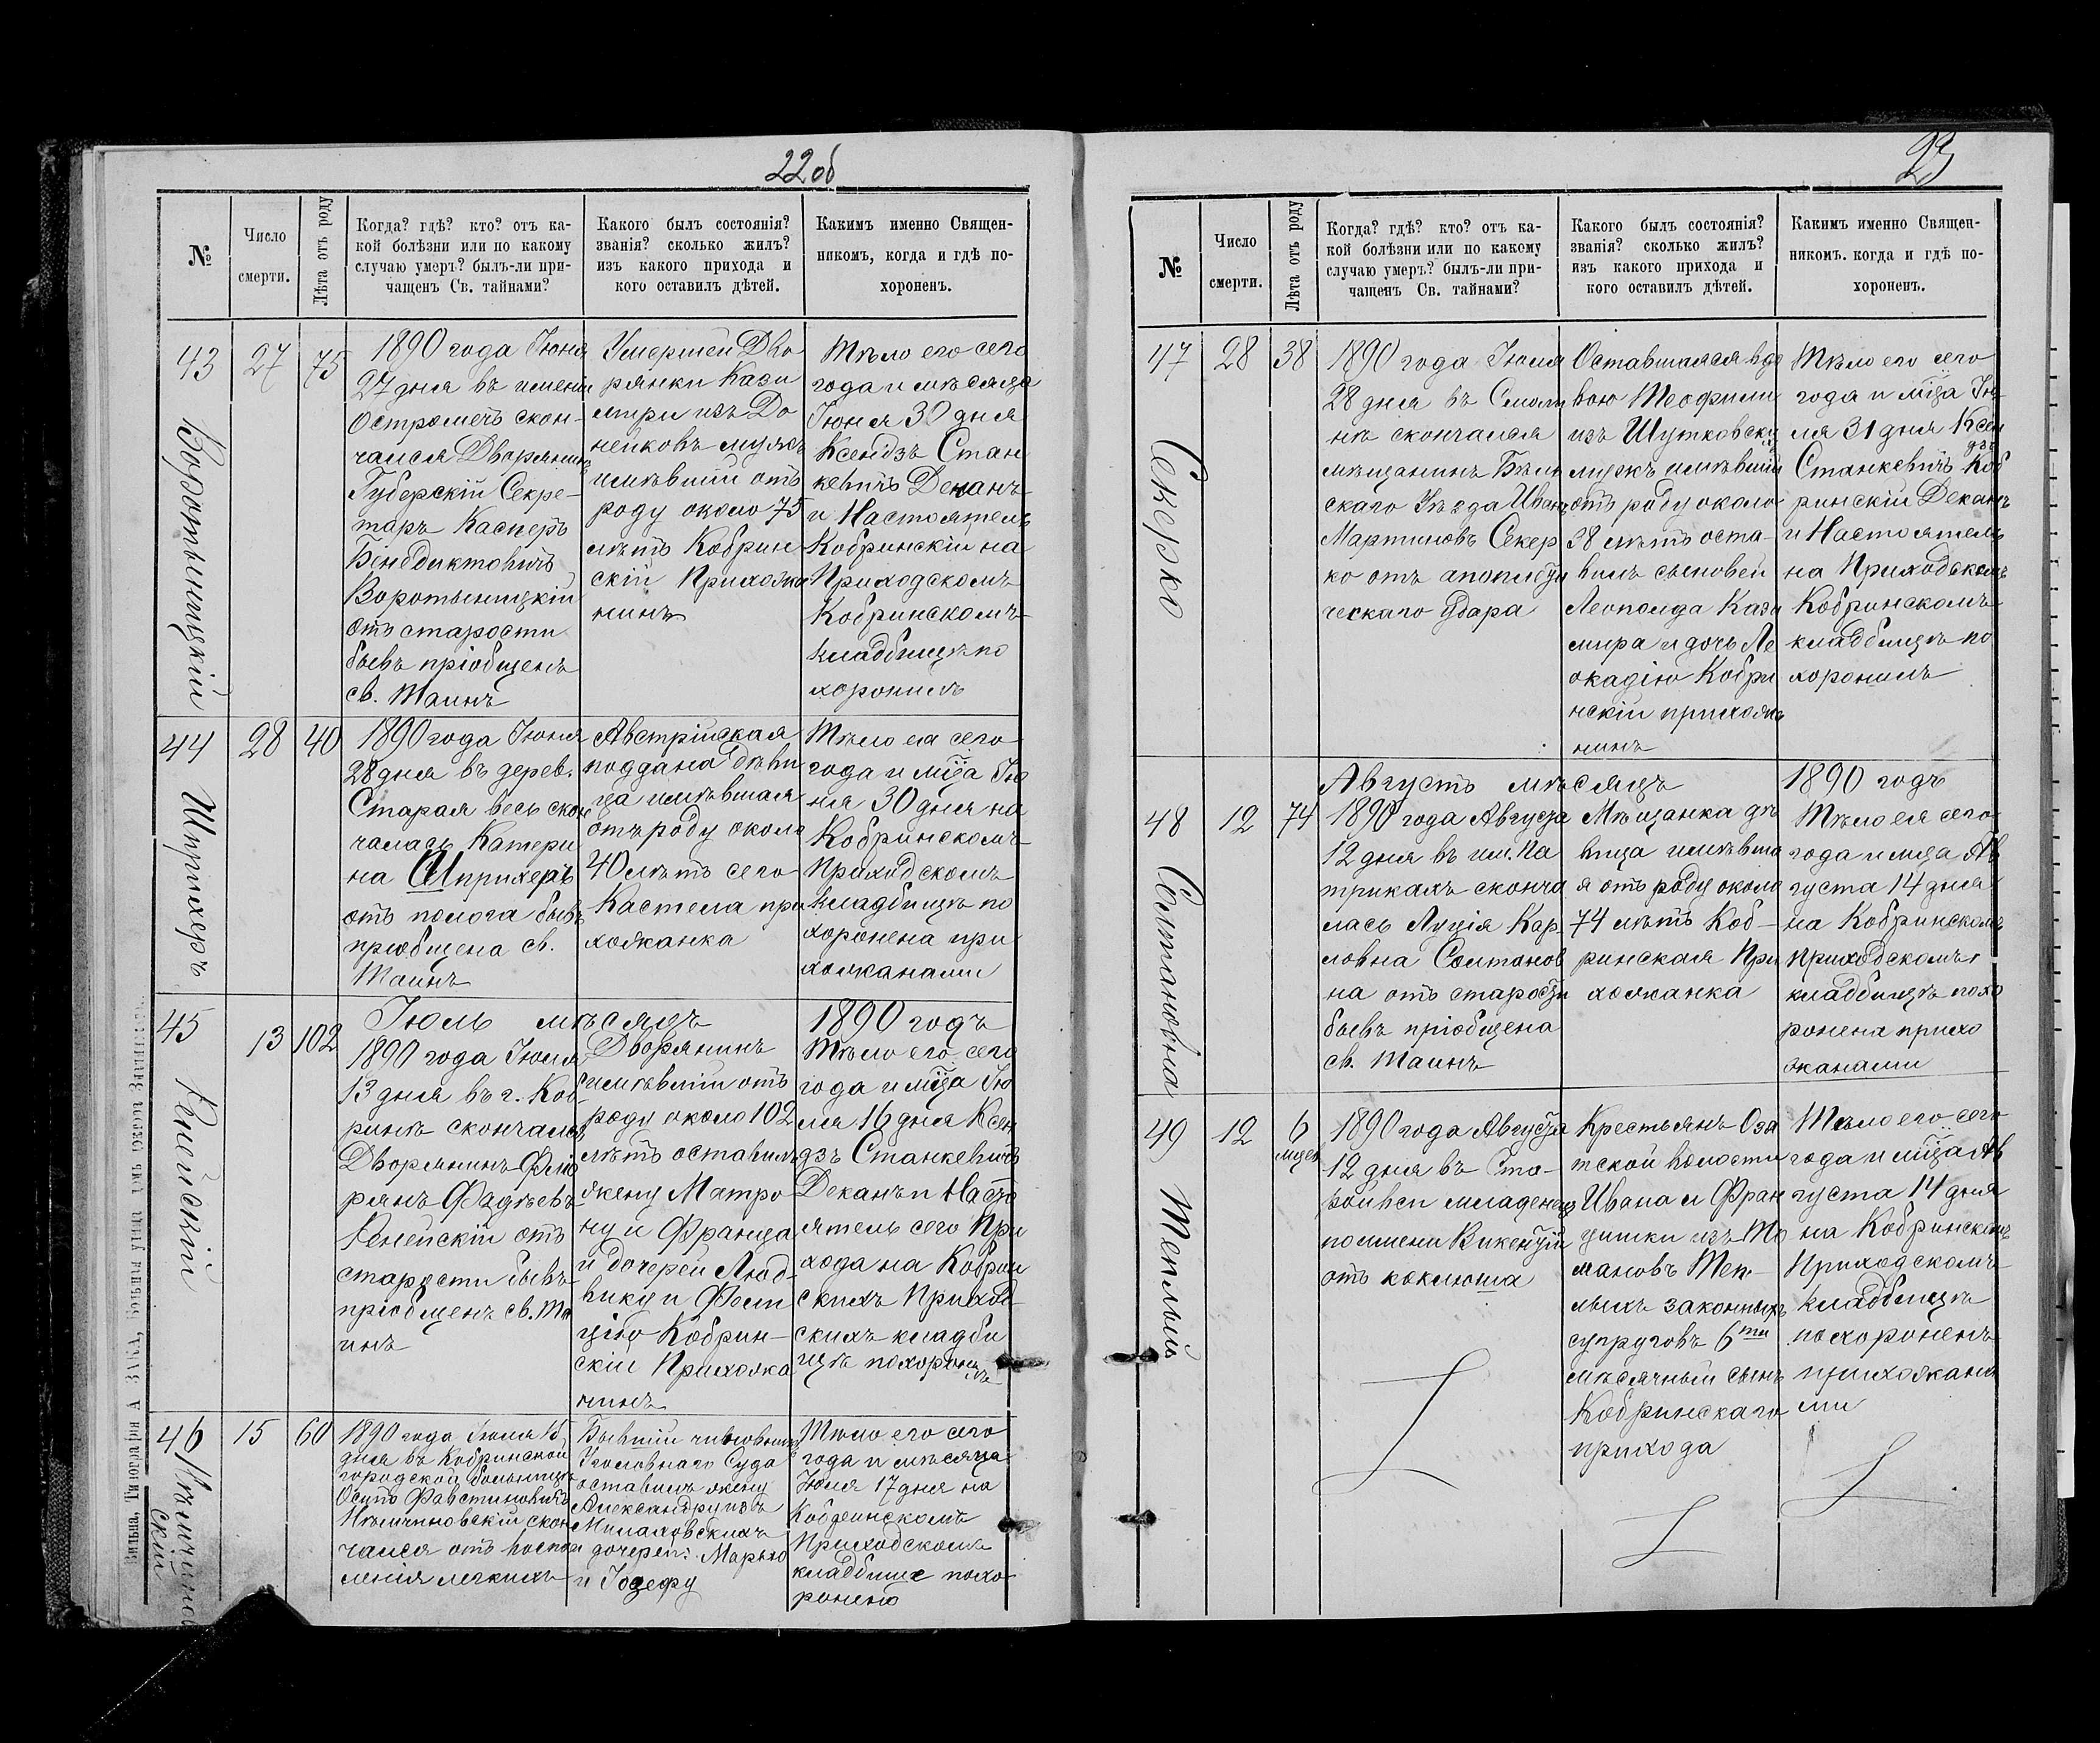 22 об
№
Число
смерти.
Лѣта отъ роду
Когда? гдѣ? кто? отъ ка-
кой болѣзни или по какому
случаю умеръ? былъ-ли при-
чащенъ Св. тайнами?
Какого былъ состоянія?
званія? сколько жилъ?
изъ какого прихода и
кого оставилъ дѣтей.
Какимъ именно Священ-
никомъ, когда и гдѣ по-
хороненъ.
43
Воротыницкій
27
75
1890 года Іюня
27 дня въ имѣніи
Остромечь скон-
чался Дворянинъ
Губерскій Секре-
таръ Касперъ
Бенедиктовичъ
Воротыницкій
отъ старости
бывъ пріобщенъ
св. Таинъ
Умершей Дво
рянки Кази
міри изъ До
нейковъ мужъ
имѣвшій отъ
роду около 75
лѣтъ Кобрин
скій Прихожа
нинъ
Тѣло его сего
года и мѣсяца
Іюня 30 дня
Ксендзъ Стан
кевичъ Деканъ
и Настоятель
Кобринскій на
Приходскомъ
Кобринскомъ
кладбищѣ по
хоронилъ
44
Шприхеръ
28
40
1890 года Іюня
28 дня въ дерев.
Старая весь скон
чалась Катери
на Шприхеръ
отъ полога бывъ
пріобщена св.
Таинъ
Австрійская
поддана дѣви
ца имѣвшая
отъ роду около
40 лѣтъ сего
Костела при
хожанка
Тѣло ея сего
года и мѣца Ію
ня 30 дня на
Кобринскомъ
Приходскомъ
кладбищѣ по
хоронена при
хожканами
Іюль мѣсяцъ 1890 годъ
45
Ренейскій
13
102
1890 года Іюля
13 дня въ г. Коб-
ринѣ скончался
Дворянинъ Фло
рянъ Фадѣевъ
Ренейскій отъ
старости бывъ
пріобщенъ св. Та
инъ
Дворянинъ
имѣвшій отъ
роду около 102
лѣтъ оставилъ
жену Матро
ну и Франца
и дочерей Люд-
вику и Фели
цію Кобрин-
скій Прихожа
нинъ
Тѣло его сего
года и мѣца Ію
ля 16 дня Ксен
дзъ Станкевичъ
Деканъ и Насто
ятель сего При
хода на Кобрин
скихъ Приход-
скихъ кладби
щѣ похорони
лъ
46
Нѣмчинов
скій
15
60
1890 года Іюля 15
дня въ Кобринской
городской больницѣ
Осипъ Фавстиновичъ
Нѣмчиновскій скон
чался отъ воспа
ленія легкихъ
Бывшій чиновникъ
Уголовнаго Суда
оставилъ жену
Александру изъ
Милаховскихъ
и дочерей: Марью
и Іозефу
Тѣло его сего
года и мѣсяца
Іюля 17 дня на
Кобринскомъ
Приходскомъ
кладбище похо-
ронено
Вильна, Типографія А. ЗАКА, Большая улица
23
№
Число
смерти.
Лѣта отъ роду
Когда? гдѣ? кто? отъ ка-
кой болѣзни или по какому
случаю умеръ? былъ-ли при-
чащенъ Св. тайнами?
Какого былъ состоянія?
званія? сколько жилъ?
изъ какого прихода и
кого оставилъ дѣтей.
Какимъ именно Священ-
никомъ. когда и гдѣ по-
хороненъ.
47
Секерко
28
38
1890 года Іюля
28 дня въ
скончался
мѣщанинъ Бѣль
скаго Уѣзда Иванъ
Мартиновъ Секер
ко отъ апоплекси
ческаго удара
Оставшаяся вдо
вою Теофили
изъ Шутковски
мужъ имѣвшій
отъ роду около
38 лѣтъ оста-
вилъ сыновей
Леопольда Кази
мира и дочь Ле
окадію Кобри
нскій прихожа
нинъ
Тѣло его сего
года и мѣца Ію-
ля 31 дня Ксен
дзъ
Станкевичъ Коб
ринскій Деканъ
и Настоятель
на Приходскомъ
Кобринскомъ
кладбищѣ по
хоронилъ
Августъ мѣсяцъ 1890 годъ
48
Солтановна
12
74
1890 года Августа
12 дня въ им. Па
трикахъ сконча
лась Луція Кар
ловна Солтанов
на отъ старости
бывъ пріобщена
св. Таинъ
Мѣщанка дѣ
вица имѣвша
я отъ роду около
74 лѣтъ Коб-
ринская При
хожанка
Тѣло ея сего
года и мѣца Ав
густа 14 дня
на Кобринскомъ
приходскомъ
кладбищѣ похо
ронена прихо
жанами
49
Теплый
12
6
мѣцев
1890 года Августа
12 дня въ Ста-
ройвси младенецъ
по имени Викентій
отъ коклюша
Крестьянъ Оза
тской волости
Ивана и Фран
цишки изъ То
мановъ Теп-
лыхъ законныхъ
супруговъ 6ти
мѣсячный сынъ
Кобринскаго
прихода
Тѣло его сего
года и мѣца Ав
густа 14 дня
на Кобринскомъ
Приходскомъ
кладбищѣ
похороненъ
прихожкана
ми